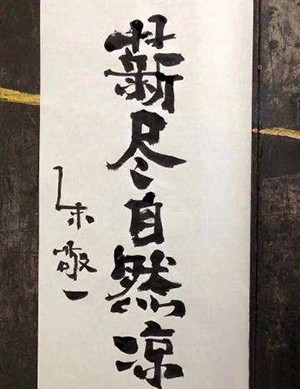 薪尽自然凉
朱敬一